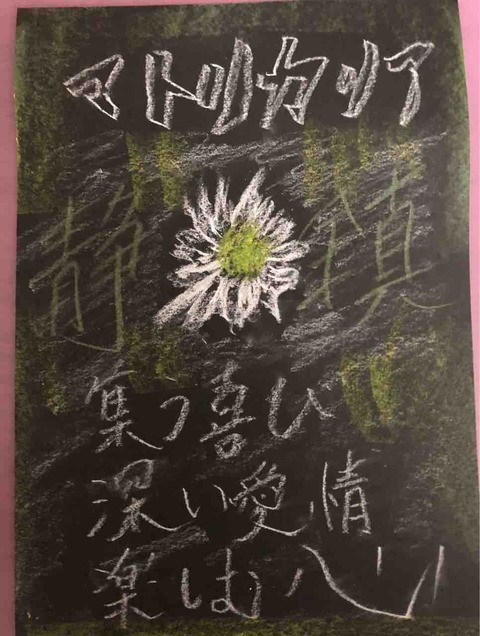 マトリカリア
静 鎮
集う喜び
深い愛情
楽しむ心